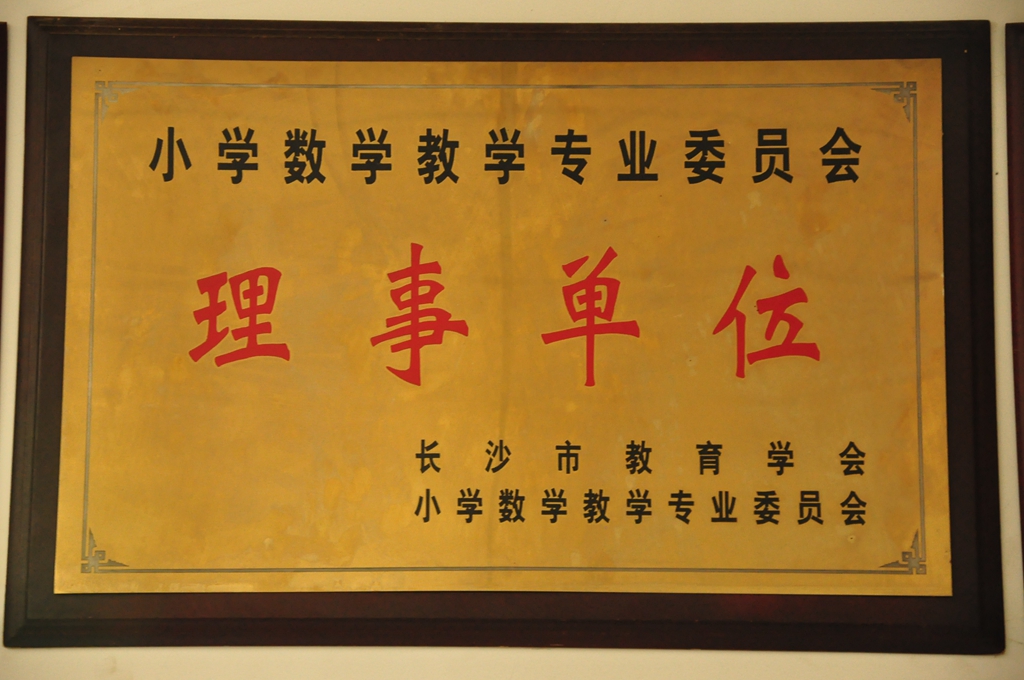 小学数学教学专业委员会
理事单位
长沙市教育学会
小学数学教学专业委员会